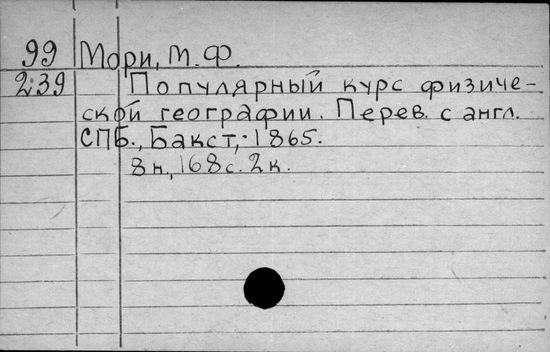 99 Мори, М.Ф.
2:39 Популярный курс физиче-
ской географии. Перев. с англ.
СПБ., Бакст, 1865.
8н., 168 с. 2 к.